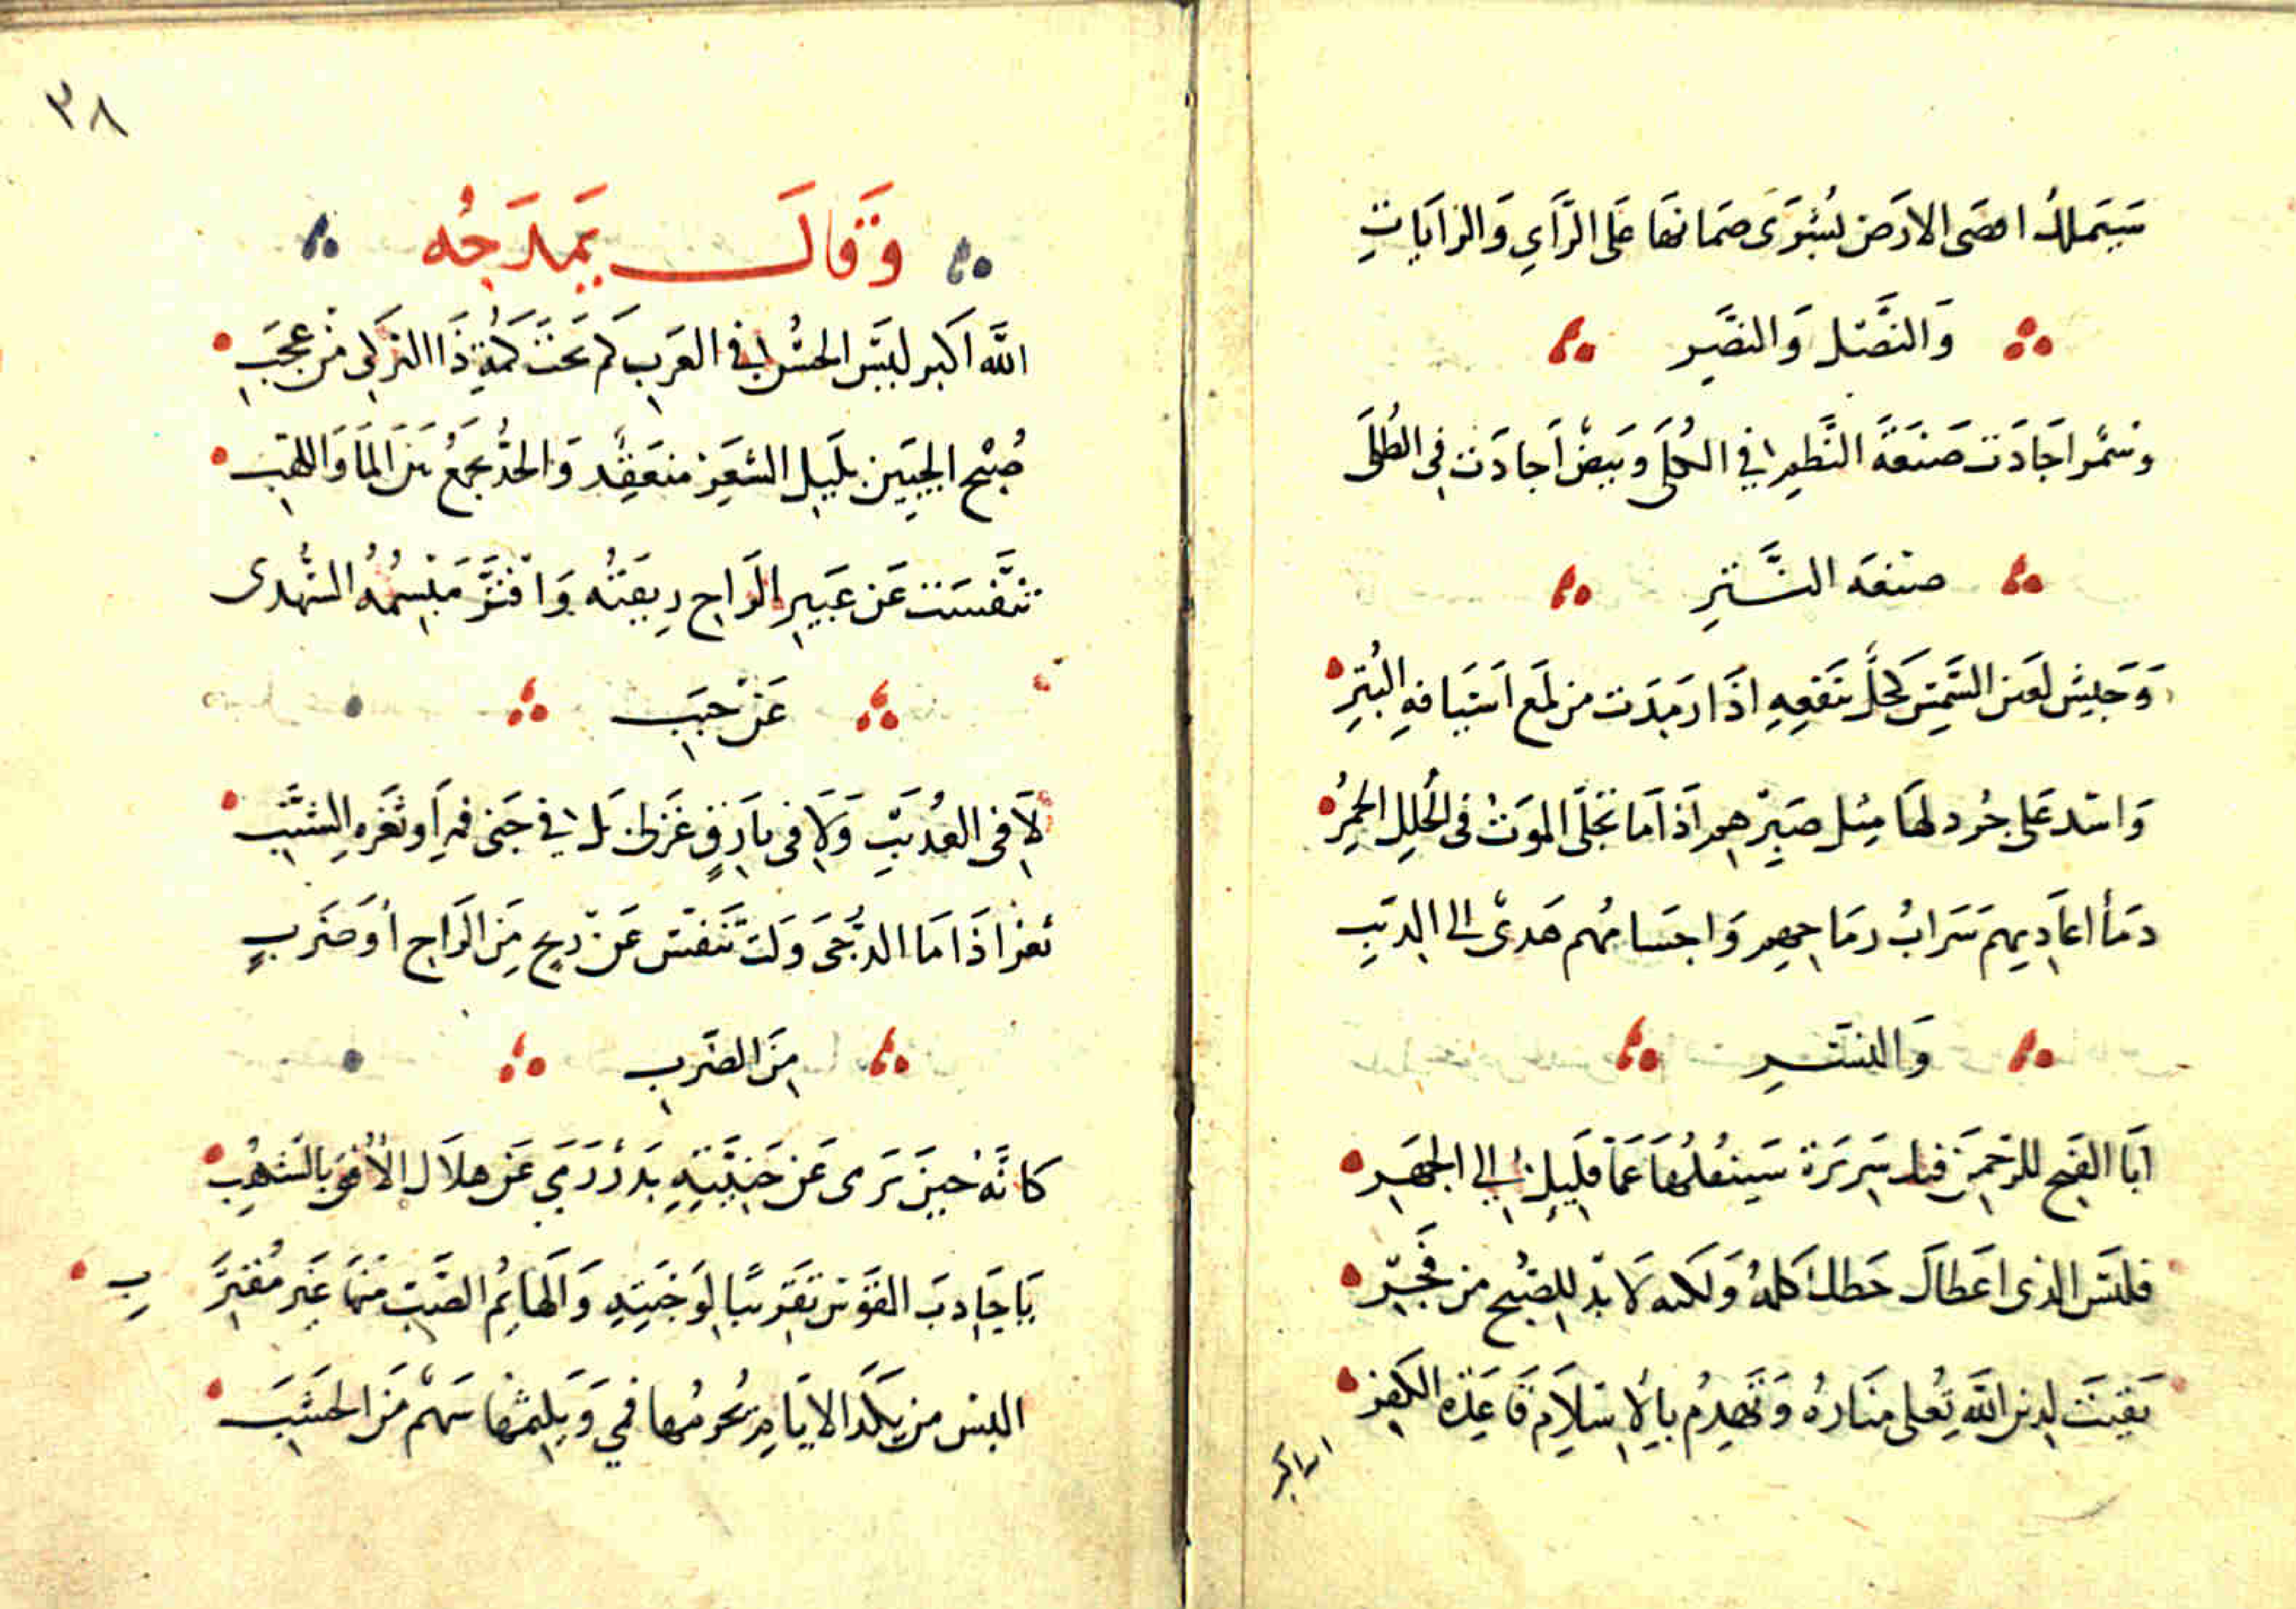 سَيَملكُ اقصَى الارَض بُشرَى ضمَانهَا عَلى الرَّايِ وَالرَايَاتِ
وَالنَّصْل وَالنصَرِ
وسُمْر اجَادَت صَنعَةَ النَّظمِ في الكُلَى وبيَضْ اَجادَت فى الطُلَى
صنعَه النثَّرِ
وَجَيش لعَين الشَّمسِ كَحلٌ بنَقعِهِ اذَا رمَدَت من لمَع اَسَيافهِ البُتِرِ
وَاسْد عَلى جُرد لهَا مثل صَبِرْهم اذَامَا تجَلّى الموَتُ فى الحُلِلِ الحمُرِ
دمَأ اعَادِيهم شَرابُ رمَاحِهم وَاجسَامُهم هَدىْ الى الذيَبِ
وَالنسَرِ
ابَا الفَتح للرَحمنَ فيك سَرِيَرة سَينعُلهَا عَمَّا قلَيلِ الى الجهَرِ
فلَيسَ الذى اعَطاكَ حَظك كَلهُ وَلكنه لَا بدّ للصُبح من فجَرِ
بَقيتَ لدين اللهَ تُعلى منَارهُ وَتهَدِمُ بالِاسَلَامِ قَاعِدَة الكفَرِ
الله اكبر
٣٨
وَقَالَ يَمدَحُه
اللهَ اكَبر ليسَ الحسُن في العرَبِ كَم تحَتَ كمُةِ ذَا التركىِ منْ عجَبَِ
صُبْح الجَبيَنِ بلَيلِ الشعَرِ منعَقِد وَالخدُّ يجمَعُ بَينَ المَا وَاللهَبِ
تنَفَّسَت عَن عَبيَرِ الرَاحِ رِيقَتُه وَافْتَرَّ مَبْسِمُهُ الشُّهدى
عَنْ حبَبَِ
لَا فى العُذيَبِ وَلَا فى بَارِقٍ غزَلى بَل في جَنى فمِ اَو ثغَرهِ الشنَبِ
ثغر اذَا مَا الدُّجىَ ولَّت تَنَفسّ عَنْ ريح مِنَ الرَاحِ أو ضرَبٍ
مِنَ الضرَبِ
كانَّه حينَ يَرمى عَن حَنِيَّتهِ بَدْر رَمَي عَن هلَال الأفق بالشهُبِ
يَا جَاذِبَ القوَسْ تقَرِيبًا لوَجنَتهِ وَالهَايُم الصَّبّ منَهَا غَير مُقترَ بِ
اليس من نكَدَ الايَّامِ يحُرمُها فمي وَيَلِثمُها سَهْم مَن الخشَبَِ